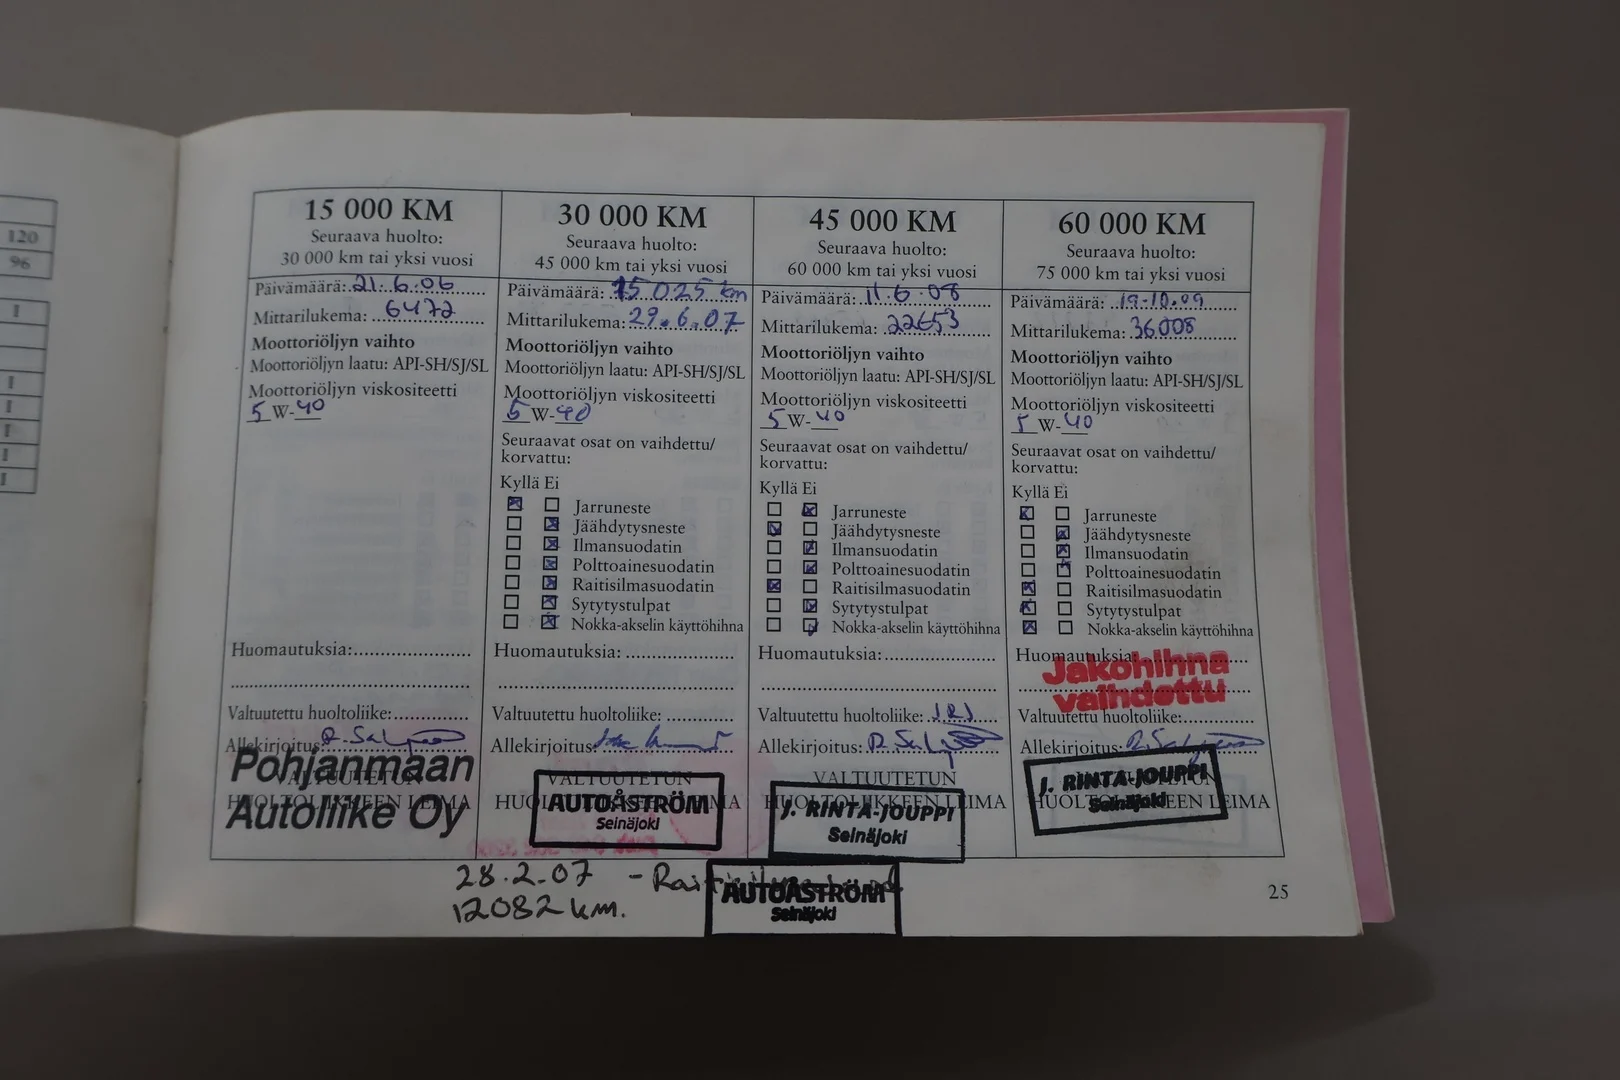 120
96
I
I
I
I
I
I
15 000 KM
Seuraava huolto:
30 000 km tai yksi vuosi
Päivämäärä: 21.6.06
Mittarilukema: 6472
Moottoriöljyn vaihto
Moottoriöljyn laatu: API-SH/SJ/SL
Moottoriöljyn viskositeetti
5 W-40
Huomautuksia:
Valtuutettu huoltoliike:
Allekirjoitus:
VALTUUTETUN
HUOLTOLIIKKEEN LEIMA
Pohjanmaan
Autoliike Oy
30 000 KM
Seuraava huolto:
45 000 km tai yksi vuosi
Päivämäärä: 15025 km
Mittarilukema: 29.6.07
Moottoriöljyn vaihto
Moottoriöljyn laatu: API-SH/SJ/SL
Moottoriöljyn viskositeetti
5 W-40
Seuraavat osat on vaihdettu/
korvattu:
Kyllä Ei
Jarruneste
Jäähdytysneste
Ilmansuodatin
Polttoainesuodatin
Raitisilmasuodatin
Sytytystulpat
Nokka-akselin käyttöhihna
Huomautuksia:
Valtuutettu huoltoliike:
Allekirjoitus:
VALTUUTETUN
HUOLTOLIIKKEEN LEIMA
AUTOÅSTRÖM
Seinäjoki
45 000 KM
Seuraava huolto:
60 000 km tai yksi vuosi
Päivämäärä: 11.6.08
Mittarilukema: 22653
Moottoriöljyn vaihto
Moottoriöljyn laatu: API-SH/SJ/SL
Moottoriöljyn viskositeetti
5 W-40
Seuraavat osat on vaihdettu/
korvattu:
Kyllä Ei
Jarruneste
Jäähdytysneste
Ilmansuodatin
Polttoainesuodatin
Raitisilmasuodatin
Sytytystulpat
Nokka-akselin käyttöhihna
Huomautuksia:
Valtuutettu huoltoliike: JRJ
Allekirjoitus:
VALTUUTETUN
HUOLTOLIIKKEEN LEIMA
J. RINTA-JOUPPI
Seinäjoki
60 000 KM
Seuraava huolto:
75 000 km tai yksi vuosi
Päivämäärä: 19-10.09
Mittarilukema: 36008
Moottoriöljyn vaihto
Moottoriöljyn laatu: API-SH/SJ/SL
Moottoriöljyn viskositeetti
5 W-40
Seuraavat osat on vaihdettu/
korvattu:
Kyllä Ei
Jarruneste
Jäähdytysneste
Ilmansuodatin
Polttoainesuodatin
Raitisilmasuodatin
Sytytystulpat
Nokka-akselin käyttöhihna
Huomautuksia:
Jakohihna
vaihdettu
Valtuutettu huoltoliike:
Allekirjoitus:
HUOLTOLIIKKEEN LEIMA
J. RINTA-JOUPPI
Seinäjoki
28.2.07 -
12082 km.
AUTOÅSTRÖM
Seinäjoki
25